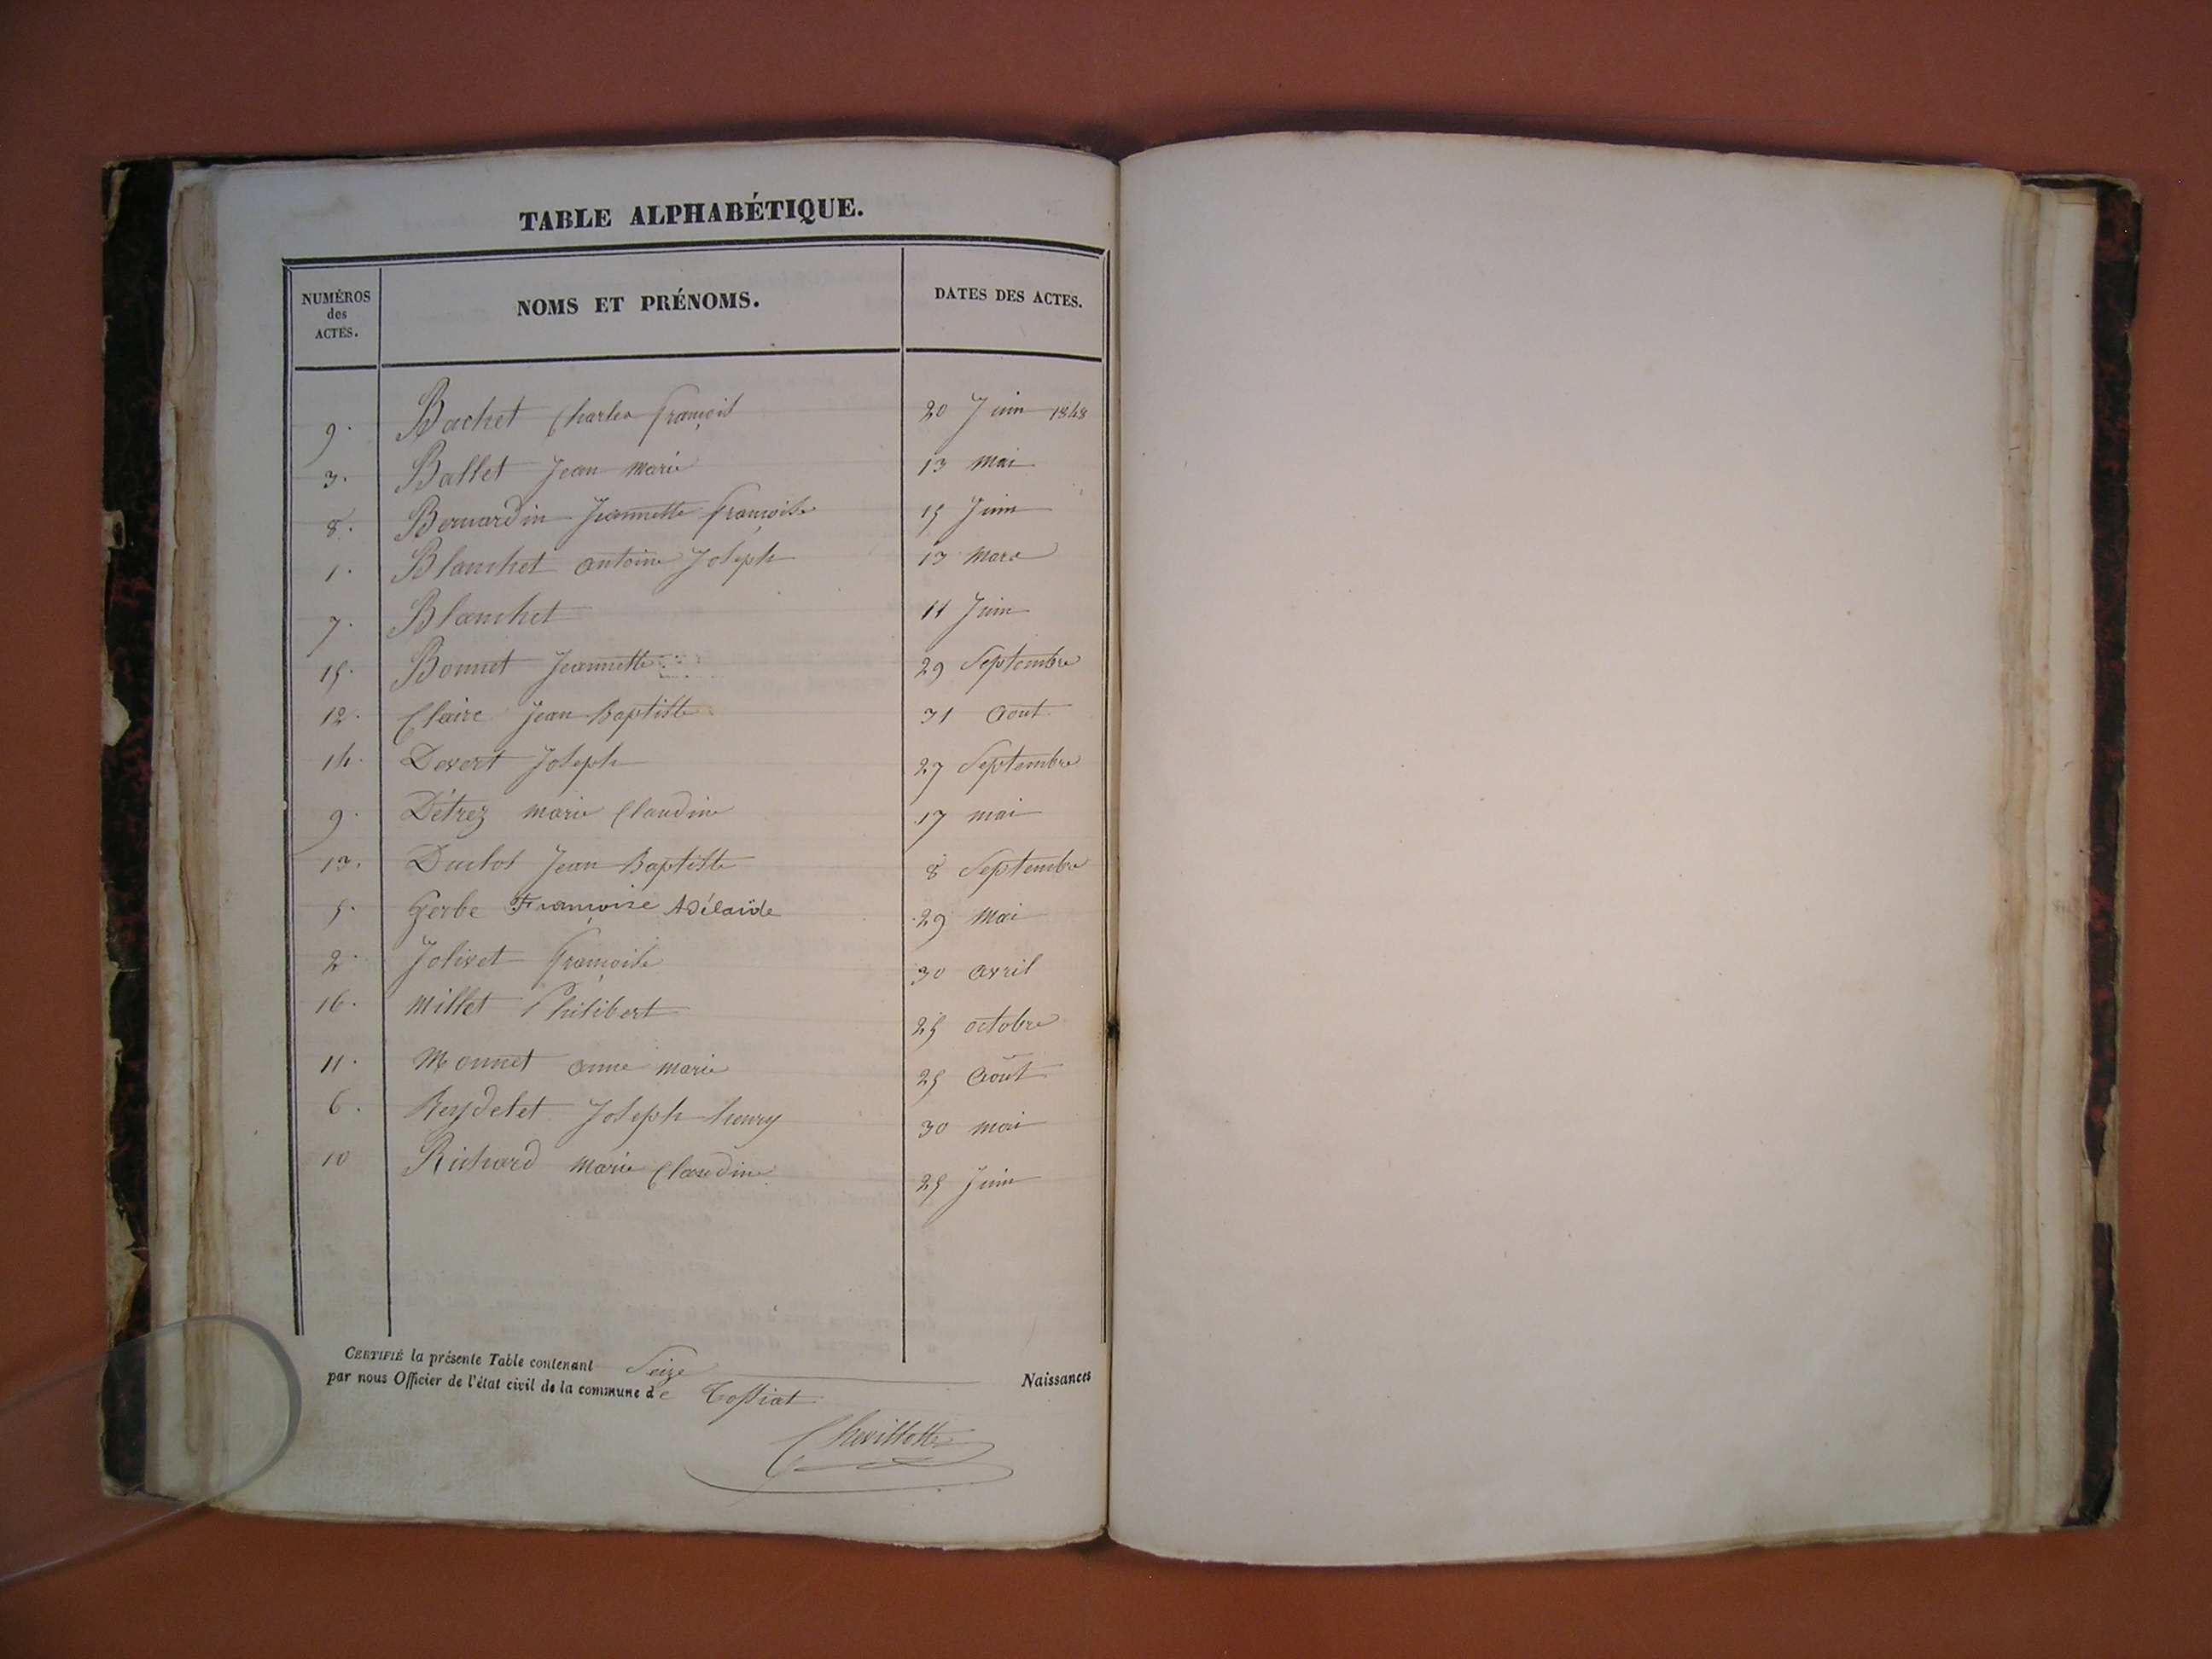 TABLE ALPHABÉTIQUE.
NUMÉROS des ACTES. NOMS ET PRÉNOMS. DATES DES ACTES.
9. Bachet Charles françois 20 Juin 1848
3. Ballet Jean marie 13 mai
8. Bernardin Jeannette françoise 15 Juin
1. Blanchet antoine Joseph 13 mars
7. Blanchet 11 Juin
15. Bonnet Jeannette 29 Septembre
12. Claire jean Baptiste 31 Aout
14. Devert Joseph 27 Septembre
9. Détrez marie Claudine 17 mai
13. Duclos Jean Baptiste 8 Septembre
5. Gerbe Françoise Adélaïde 29 Mai
2. Jolivet françoise 30 avril
16. Millet Philibert 25 octobre
11. Monnet anne marie 25 Août
6. Reydelet Joseph henry 30 mai
10 Richard marie Claudine 25 Juin
CERTIFIÉ la présente Table contenant Seize Naissances
par nous Officier de l'état civil de la commune de Tossiat
Chevillotte